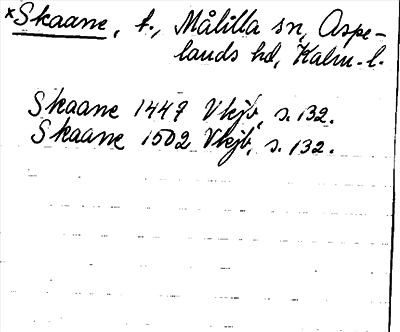 ×Skaane, t., Målilla sn, Aspe-
lands hd, Kalm. l.
Skaane 1447 Vkjb, s. 132.
Skaane 1502 Vkjb, s. 132.